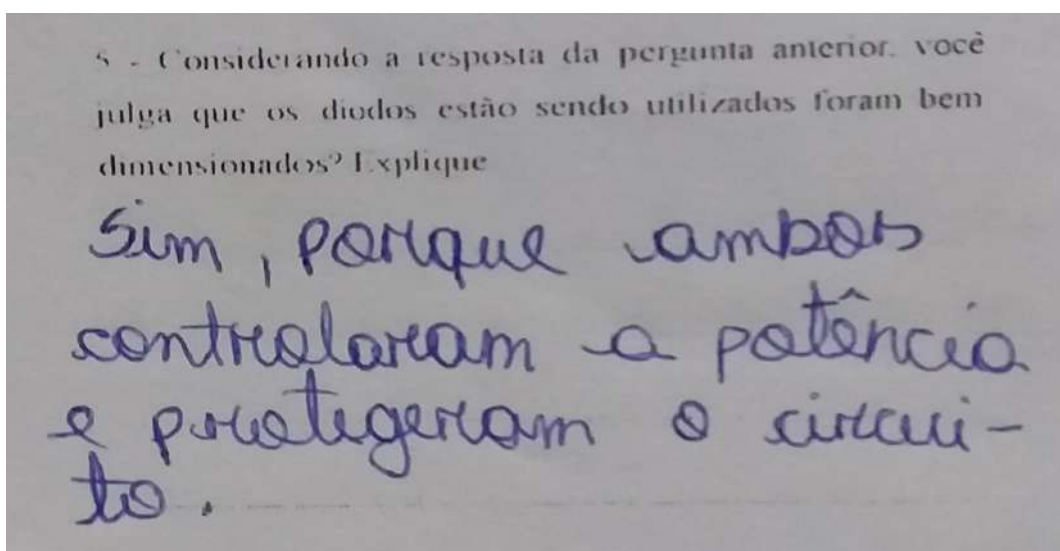 5 - Considerando a resposta da pergunta anterior. você
julga que os diodos estão sendo utilizados foram bem
dimensionados? Explique
Sim, porque ambos
controlaram a potência
e protegeram o circui-
to.